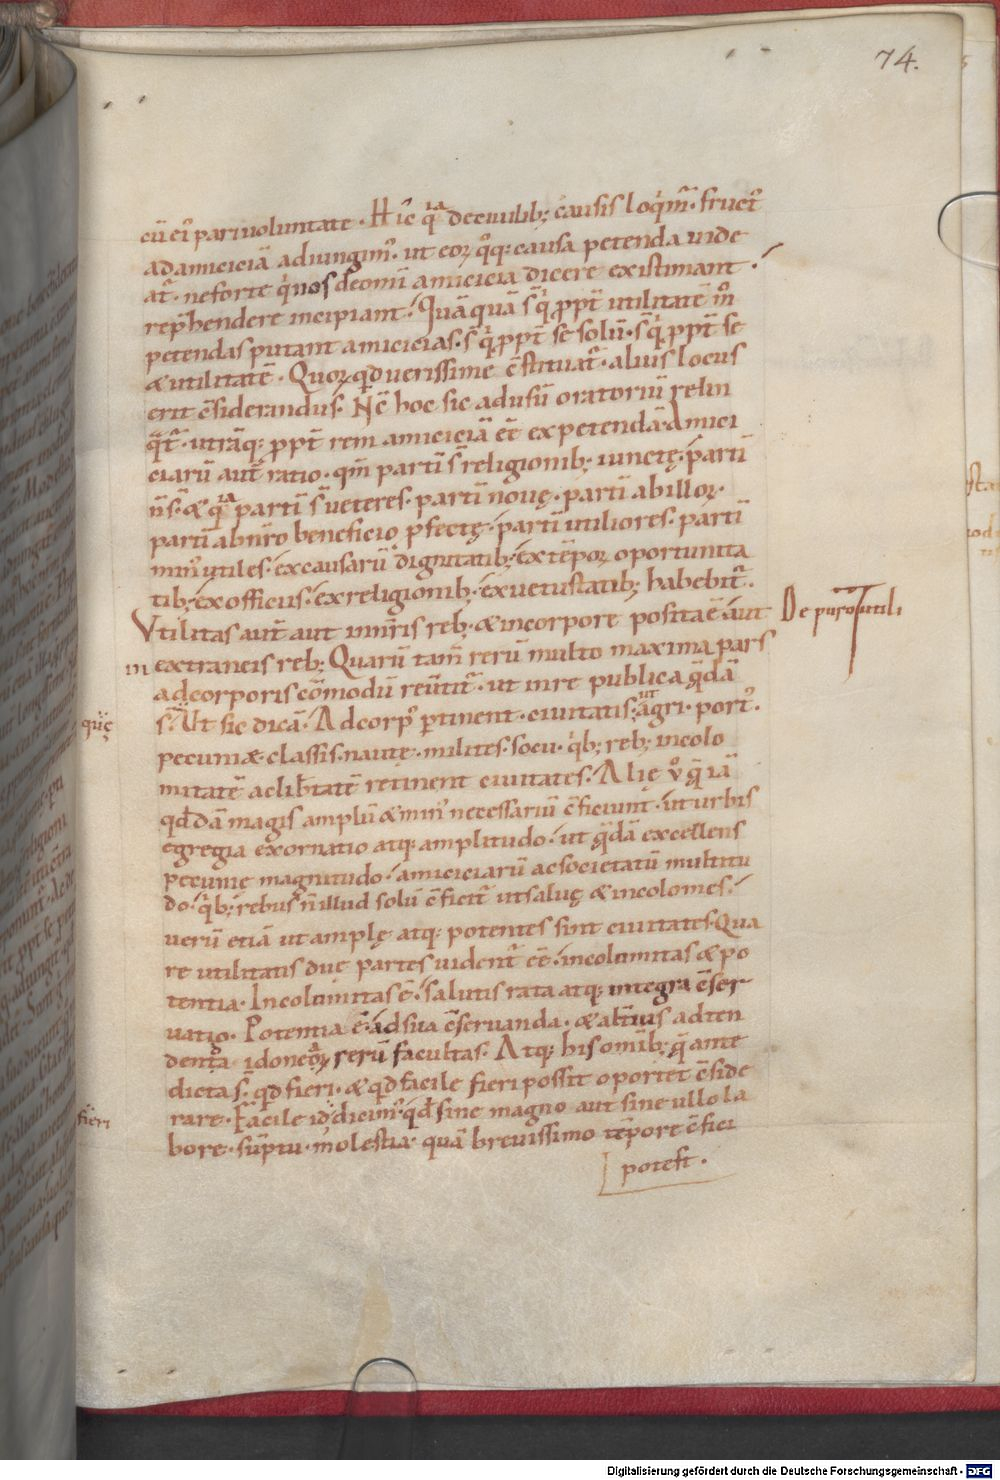 74.
cū eı᷒ pari uoluntate · Hic̄ q̄a de ciuilib; causis loq̄m̄ · fruct᷒
ad amiciciā adiungim᷒ · ut eoꝝ q̊q; causa petenda uide
at̄ · ne forte q̊s nos de omī amicicia dicere existimant ·
rep̄hendere incipiant · Quāquā s̄ q̊ ppt̄ utilitatē m̊
petendas putant amicicias · s̄ q̊ ppt̄ se solū · s̄ q̊ ppt̄ se
& utilitatē · Quoꝝ qđ uerissime c̄stituat̄ · alius locus
erit c̄siderandus · Nc̄ hoc sic ad usū oratoriū relin
q̄t̄ · utrāq; ppt̄ rem amiciciā eē expetendā · Amici
ciarū aut̄ ratio · qm̄ partī s̄ religionib; iunctę · partī
n̄ s̄ · & q̄a partī s̄ ueteres · partī nouę · partī ab illoꝝ ·
partī ab nr̄o beneficio pfectę · partī utiliores · partī
min᷒ utiles · ex causarū dignitatib; ex tēpoꝝ oportunita
tib; ex officiis · ex religionib; ex uetustatib; habebit̄ ·
Vtilitas aut̄ aut in nr̄is reb; & in corpore posita ē aut De puro utili
in extraneis reb; Quarū tam̄ rerū multo maxima pars
ad corporis cōmodū reūtit̄ · ut in re publica q̄dā
quę s̄ · Ut sic dicā · Ad corp᷒ ptinent · ciuitatis · ut agri · port᷒ ·
pecuniæ · classis · nautę · milites · socii · q̊b; reb; incolo
mitatē ac lib̄tatē retinent ciuitates · Alię ů q̄ iā
qđdā magis amplū & min᷒ necessariū c̄ficiunt · ut urbis
egregia exornatio atq; amplitudo · ut q̄dā excellens
pecunię magnitudo · amiciciarū ac societatū multitu
do · q̊b; rebus n̄ illud solū c̄ficit̄ ut saluę & incolomes ·
uerū etiā ut amplę atq; potentes sint ciuitates · Qua
re utilitatis duę partes uident̄ eē · incolumitas & po
tentia · Incolumitas ē · salutis rata atq; integra c̄ser
uatio · Potentia ē · ad sua c̄seruanda · & alt̄ius adten
denda idoneoꝝ rerū facultas · Atq; his omīb; q̄ ante
dicta s̄ · qđ fieri · & qđ facile fieri possit oportet c̄side
fieri rare · Facile id dicim᷒ · qđ sine magno aut sine ullo la
bore · sūptu · molestia · quā breuissimo tēpore c̄fici
potest ·
Digitalisierung gefördert durch die Deutsche Forschungsgemeinschaft - DFG